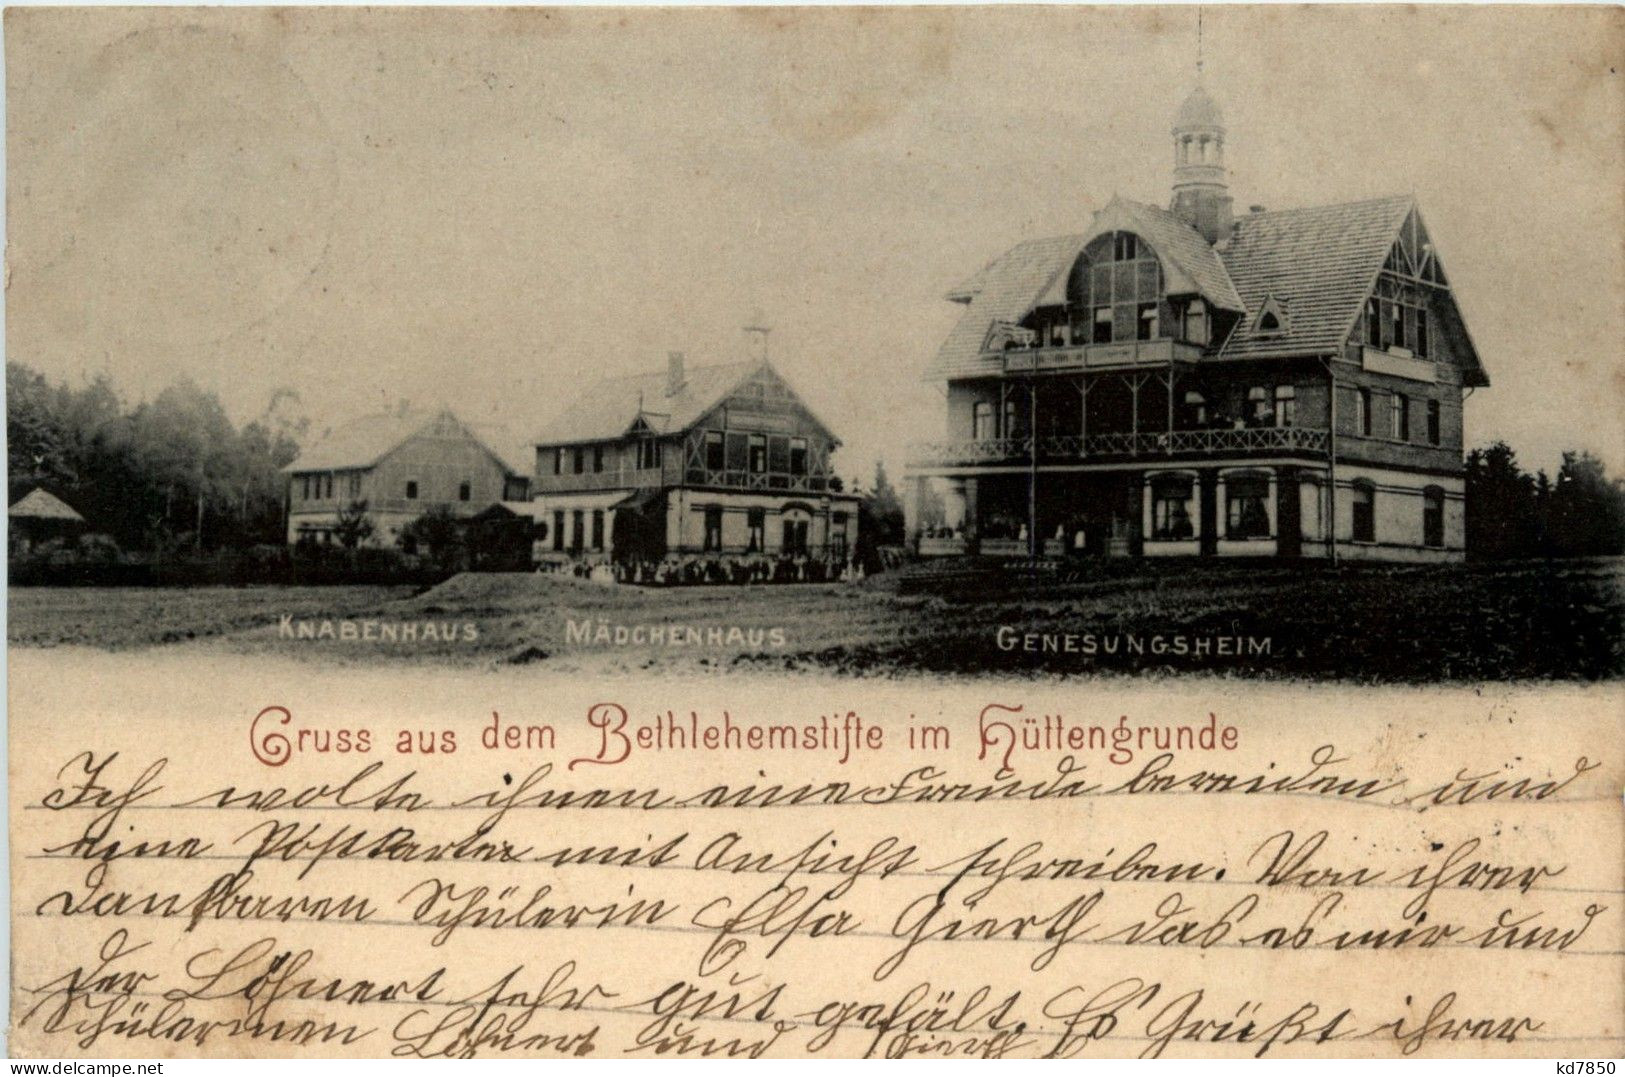 KNABENHAUS
MÄDCHENHAUS
GENESUNGSHEIM
Gruss aus dem Bethlehemstifte im Hüttengrunde
Ich wolte ihnen eine Freude bereiden und
eine Postkarte mit Ansicht schreiben. Von ihrer
dankbaren Schülerin Elsa Gierth das es mir und
der Löhnert sehr gut gefält. Es Grüßt ihrer
Schülerinnen Löhnert und Gierth
delcampe.net
kd7850